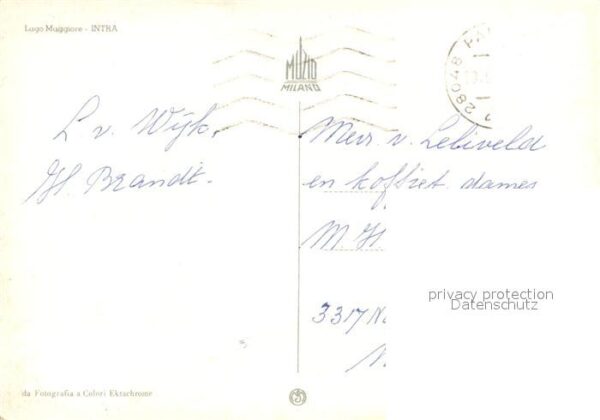 Lago Maggiore - INTRA
MUZIO
MILANO
28048
L v. Wijk.
H. Brandt.
Mevr. v. Leliveld
en koffiet dames
M. H
privacy protection
Datenschutz
3317 N
N.
da Fotografia a Colori Ektachrome